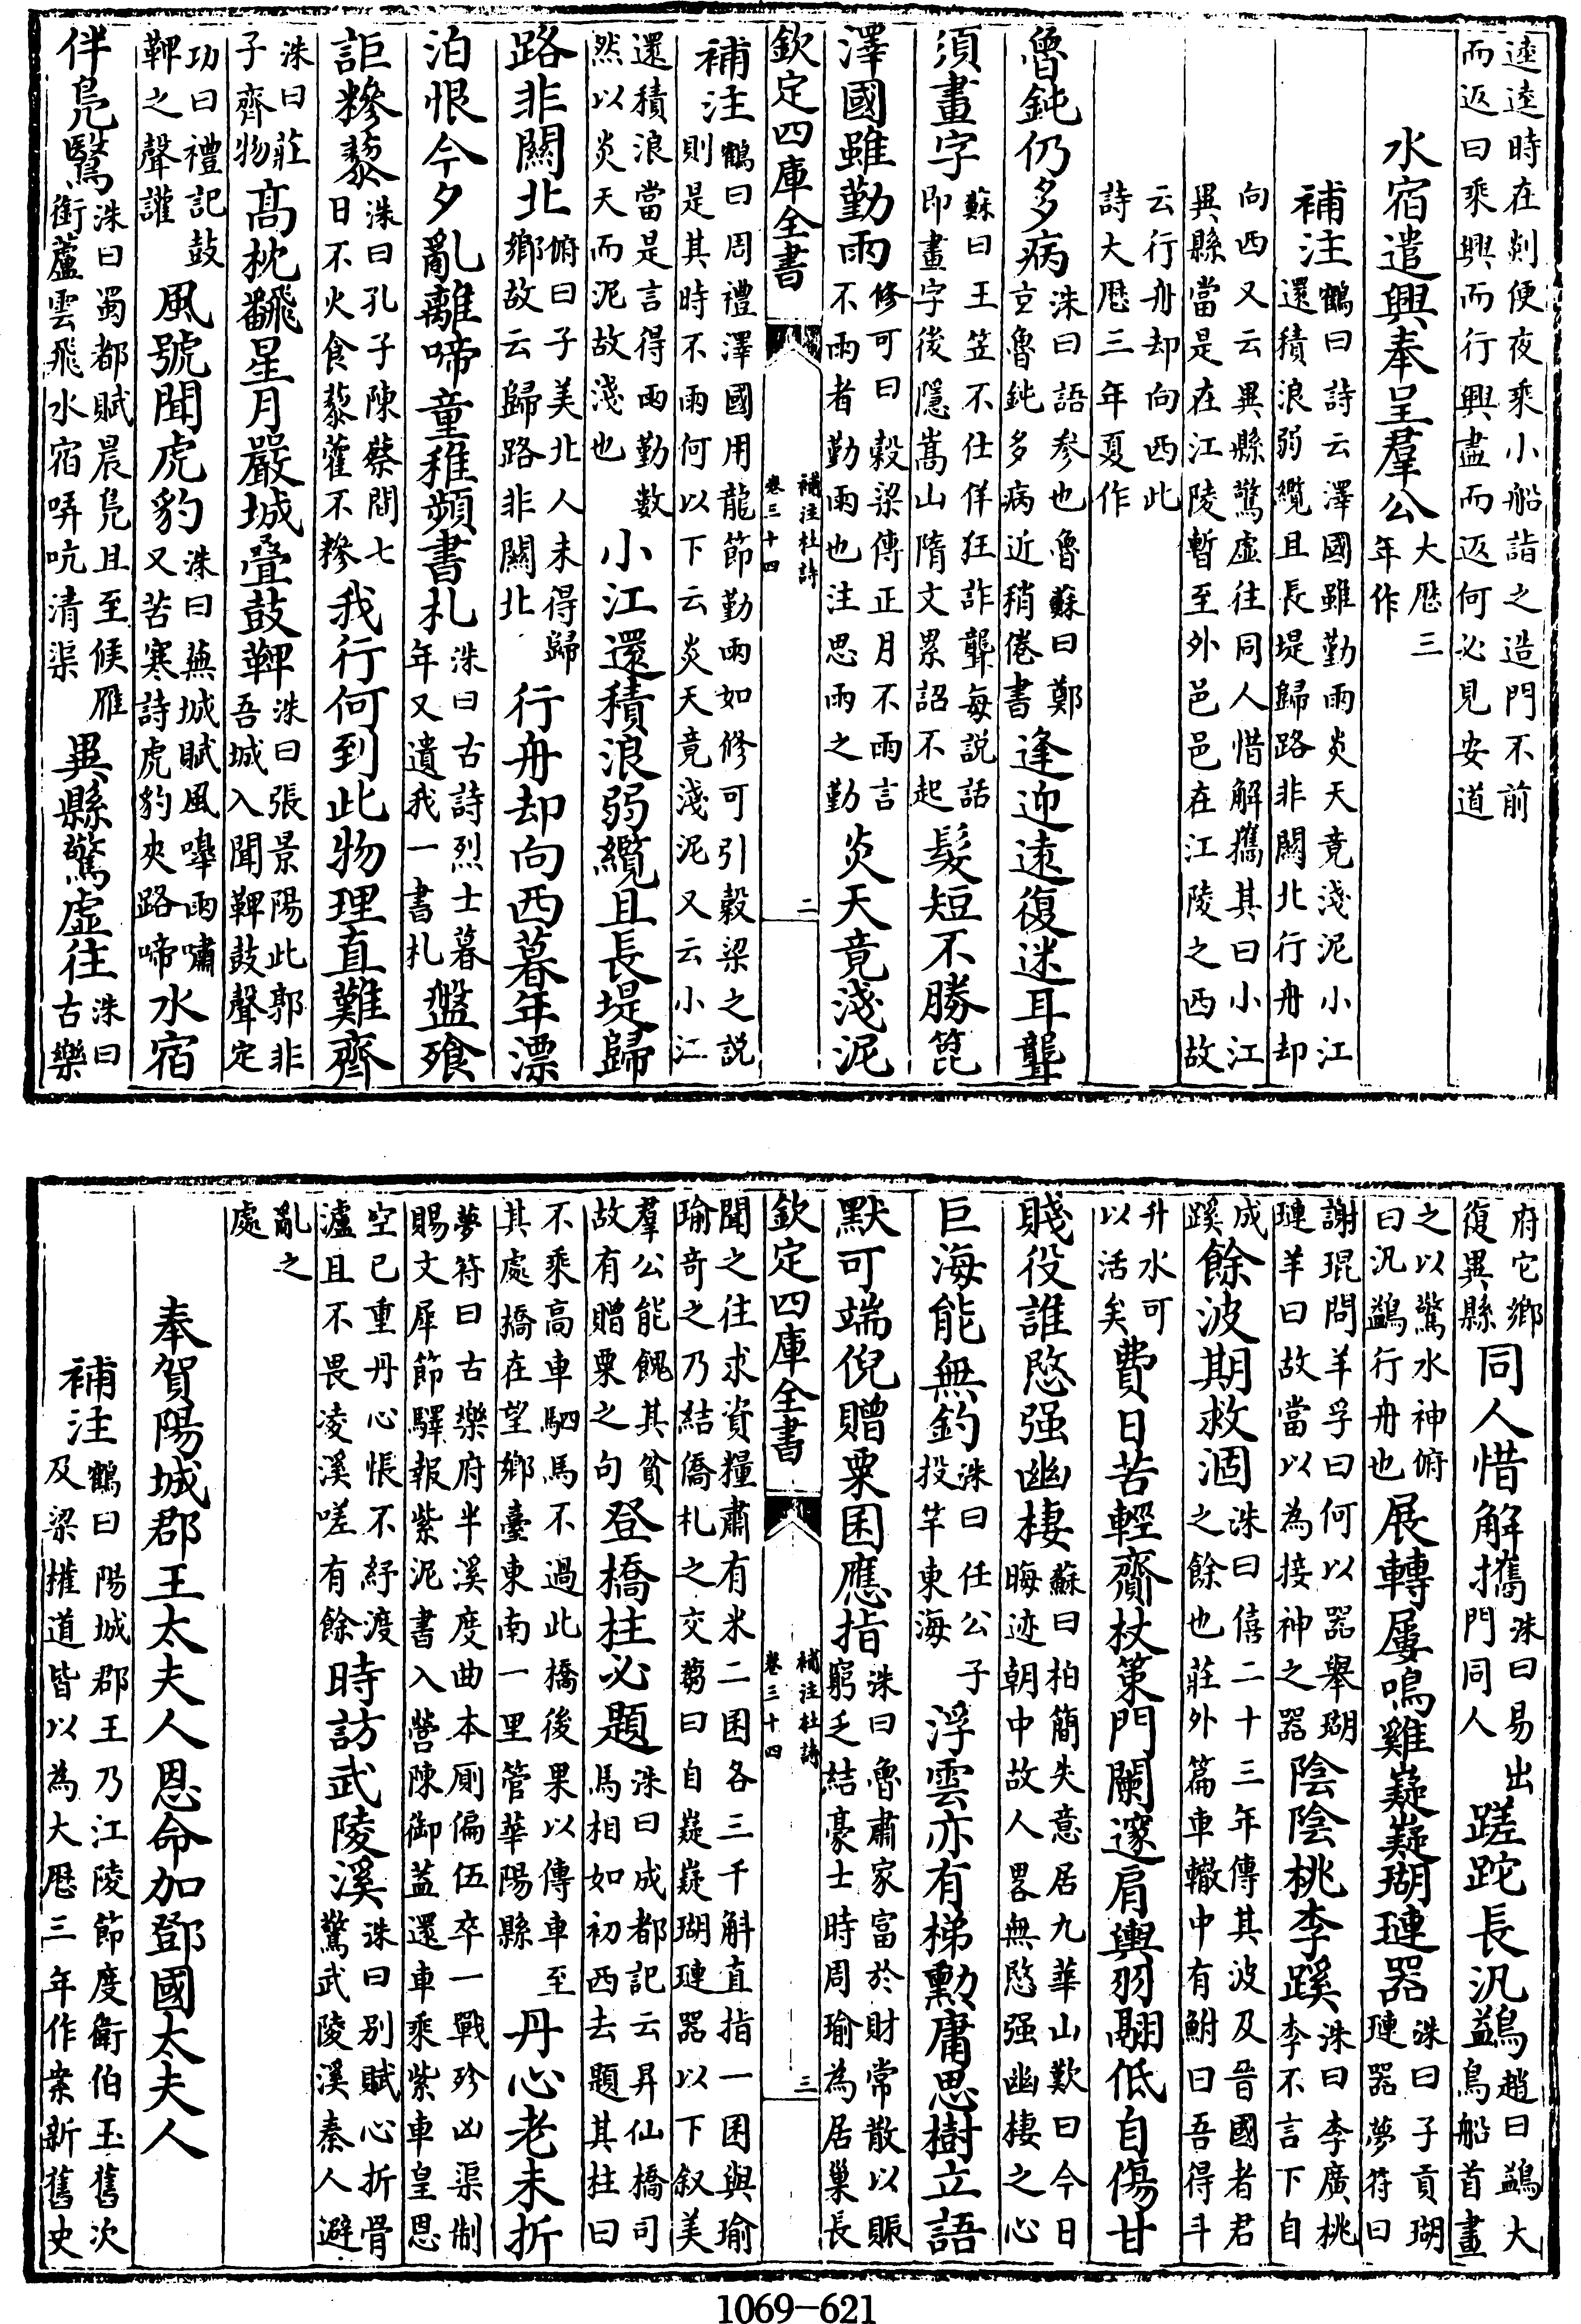 逵逵時在剡便夜乘小船詣之造門不前
而返曰乘興而行興盡而返何必見安道
水宿遣興奉呈羣公大厯三年作
補注鶴曰詩云澤國雖勤雨炎天竟淺泥小江還積浪弱纜且長堤歸路非關北行舟却
向西又云異縣驚虛往同人惜解攜其曰小江異縣當是在江陵暫至外邑邑在江陵之西故
云行舟却向西此詩大厯三年夏作
魯鈍仍多病洙曰語參也魯蘇曰鄭玄魯鈍多病近稍倦書逢迎逺復迷耳聾
須畫字蘇曰王笠不仕佯狂詐聾每説話即畫字後隱嵩山隋文累詔不起髮短不勝篦
澤國雖勤雨修可曰榖梁傳正月不雨言不雨者勤雨也注思雨之勤炎天竟淺泥
欽定四庫全書 補注杜詩 卷三十四 二
補注鶴曰周禮澤國用龍節勤雨如修可引榖梁之説則是其時不雨何以下云炎天竟淺泥又云小江
還積浪當是言得雨勤數然以炎天而泥故淺也小江還積浪弱纜且長堤歸
路非關北俯曰子美北人未得歸鄉故云歸路非關北行舟却向西暮年漂
泊恨今夕亂離啼童稚頻書札洙曰古詩烈士暮年又遺我一書札盤飱
詎糝藜洙曰孔子陳蔡間七日不火食藜藿不糝我行何到此物理直難齊
洙曰莊子齊物高枕翻星月嚴城疊鼓鞞洙曰張景陽此郭非吾城入聞鞞鼓聲定
功曰禮記鼓鞞之聲讙風號聞虎豹洙曰蕪城賦風嘷雨嘯又苦寒詩虎豹夾路啼水宿
伴鳧鷖洙曰蜀都賦晨鳧旦至候雁銜蘆雲飛水宿哢吭清渠異縣驚虛往洙曰古樂
府它鄉復異縣同人惜解攜洙曰易出門同人蹉跎長汎鷁趙曰鷁大鳥船首畫
之以驚水神俯曰汎鷁行舟也展轉屢鳴雞嶷嶷瑚璉器洙曰子貢瑚璉器夢符曰
謝琨問羊孚曰何以器舉瑚璉羊曰故當以為接神之器陰陰桃李蹊洙曰李廣桃李不言下自
成蹊餘波期救涸洙曰僖二十三年傳其波及晉國者君之餘也莊外篇車轍中有鮒曰吾得斗
升水可以活矣費日苦輕齎杖策門闌邃肩輿羽翮低自傷甘
賤役誰愍强幽棲蘇曰柏簡失意居九華山歎曰今日晦迹朝中故人畧無愍强幽棲之心
巨海能無釣洙曰任公子投竿東海浮雲亦有梯勲庸思樹立語
默可端倪贈粟囷應指洙曰魯肅家富於財常散以賑窮乏結豪士時周瑜為居巢長
欽定四庫全書 補注杜詩 卷三十四 三
聞之往求資糧肅有米二囷各三千斛直指一囷與瑜瑜奇之乃結僑札之交芻曰自嶷嶷瑚璉器以下叙美
羣公能餽其貧故有贈粟之句登橋柱必題洙曰成都記云昇仙橋司馬相如初西去題其柱曰
不乘高車駟馬不過此橋後果以傳車至其處橋在望鄉臺東南一里管華陽縣丹心老未折
夢符曰古樂府半溪度曲本厠偏伍卒一戰殄凶渠制賜文犀節驛報紫泥書入營陳御蓋還車乘紫車皇恩
空已重丹心悵不紓渡瀘且不畏凌溪嗟有餘時訪武陵溪洙曰别賦心折骨驚武陵溪秦人避
亂之處
奉賀陽城郡王太夫人恩命加鄧國太夫人
補注鶴曰陽城郡王乃江陵節度衛伯玉舊次及梁權道皆以為大厯三年作案新舊史
1069–621